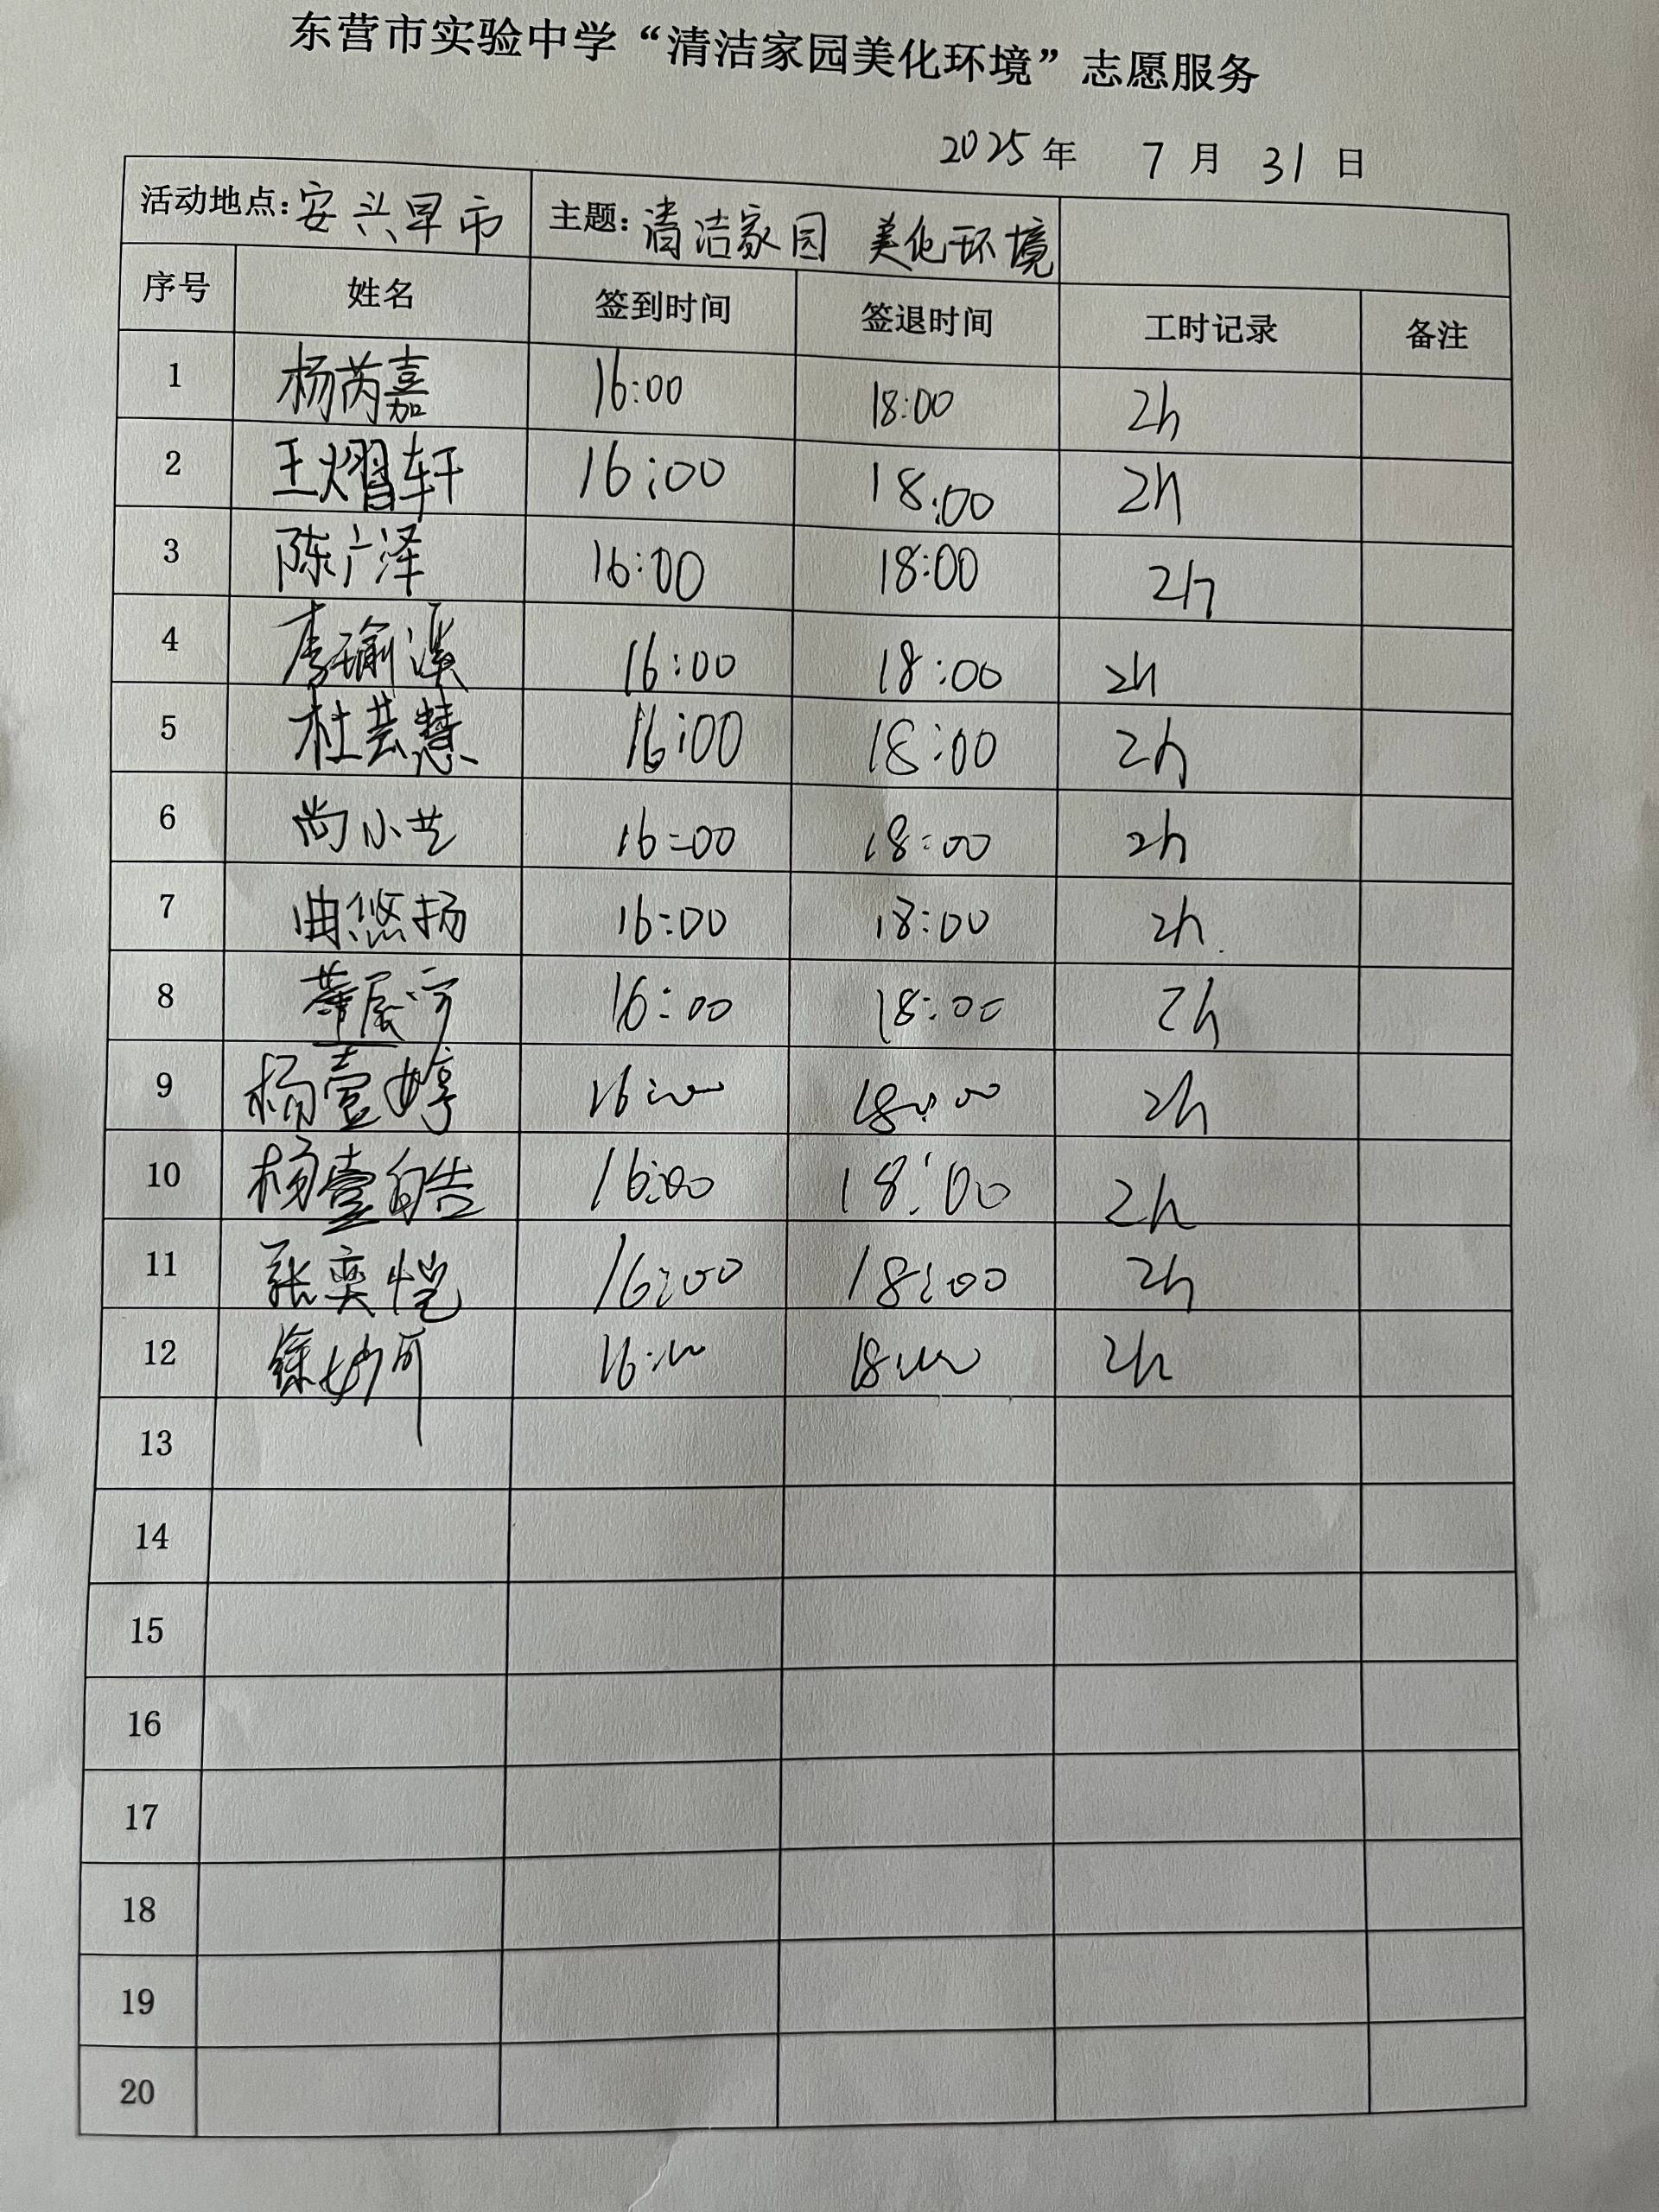 东营市实验中学“清洁家园美化环境”志愿服务
2025年 7月31日
活动地点:安兴早市 主题:清洁家园 美化环境
序号 姓名 签到时间 签退时间 工时记录 备注
1 杨芮嘉 16:00 18:00 2h
2 王熠轩 16:00 18:00 2h
3 陈广泽 16:00 18:00 2h
4 李瑜溪 16:00 18:00 2h
5 杜芸慧 16:00 18:00 2h
6 尚小艺 16:00 18:00 2h
7 曲悠扬 16:00 18:00 2h
8 16:00 18:00 2h
9 杨壹婷 16:00 18:00 2h
10 杨壹皓 16:00 18:00 2h
11 张奕恺 16:00 18:00 2h
12 徐妙可 16:00 18:00 2h
13
14
15
16
17
18
19
20